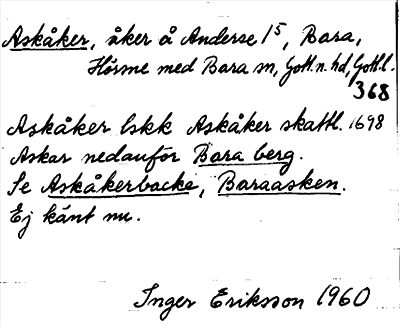 Askåker, åker å Anderse 1⁵, Bara,
Hörsne med Bara sn, Gotl. n. hd, Gotl. l.
368
Askåker lskk Askåker skattl. 1698
Askar nedanför Bara berg.
Se Askåkerbacke, Baraasken.
Ej känt nu.
Inger Eriksson 1960